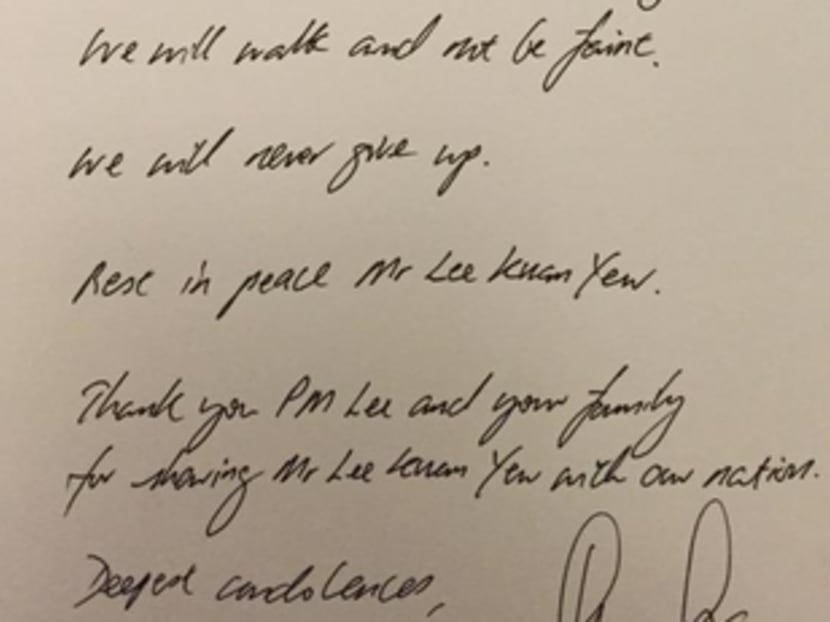 We will walk and not be faint.
We will never give up.
Rest in peace Mr Lee Kuan Yew.
Thank you PM Lee and your family
for sharing Mr Lee Kuan Yew with our nation.
Deepest condolences,